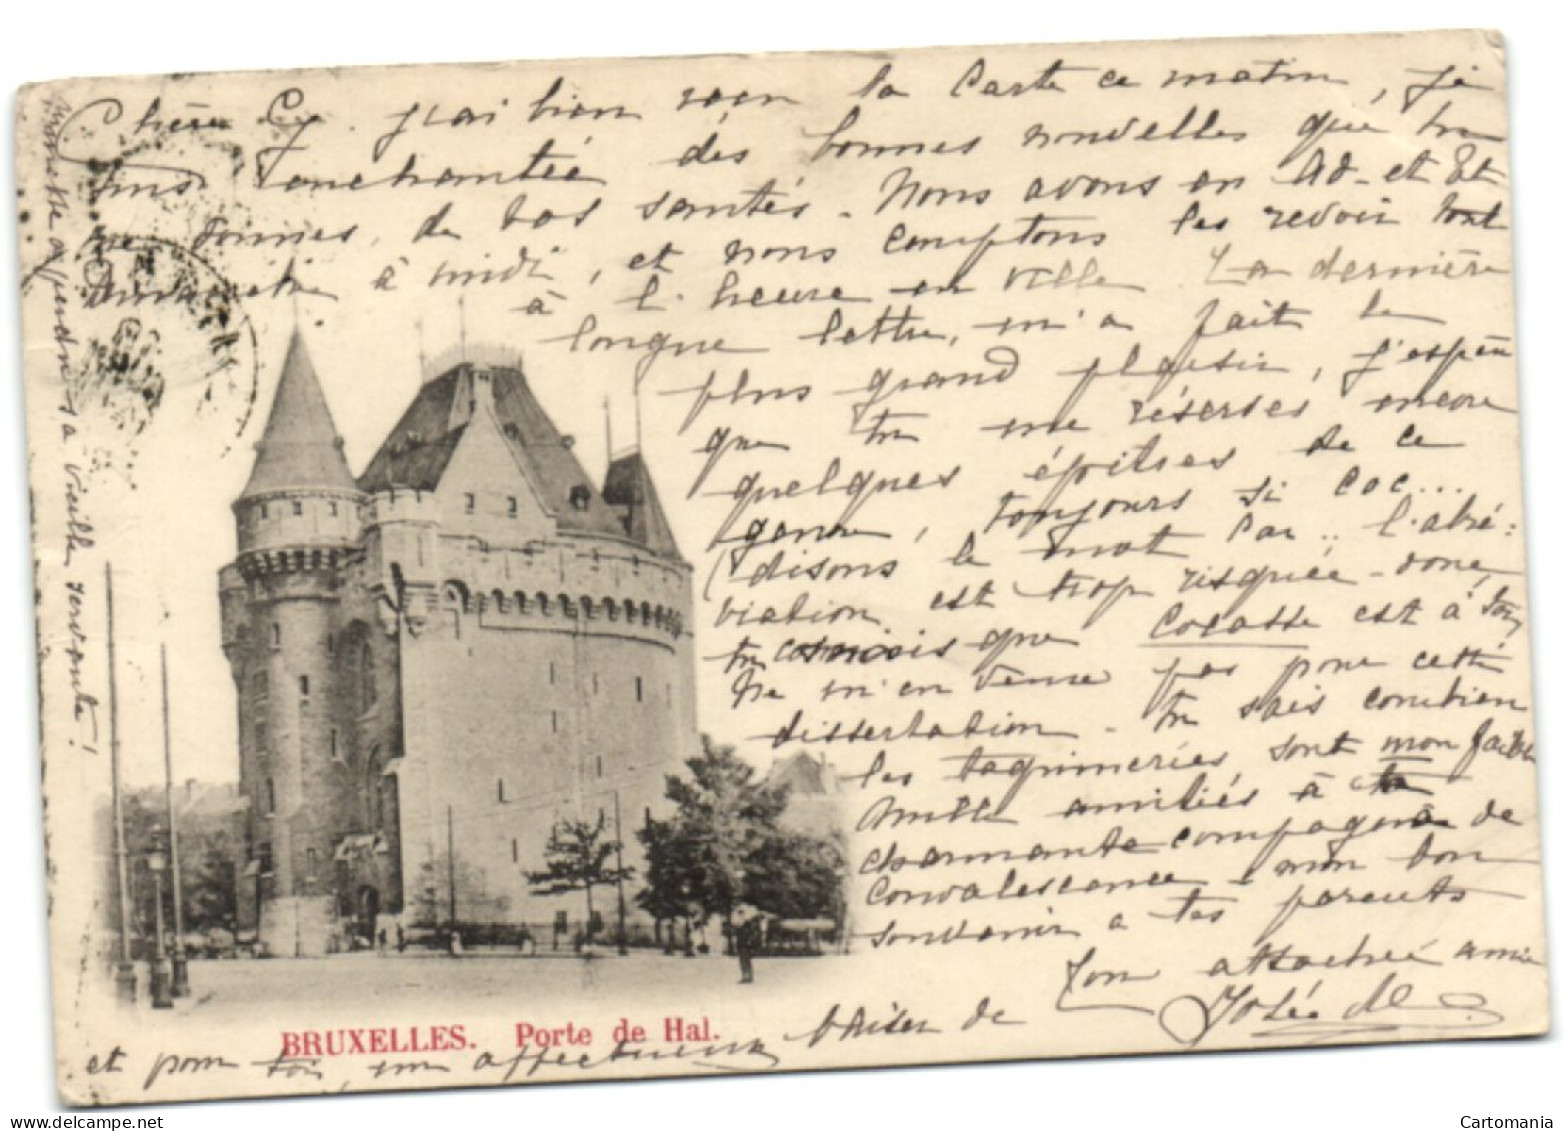 Chère Cy. j'ai bien reçu ta carte ce matin, je
suis enchantée des bonnes nouvelles que tu
me donnes, de vos santés. Nous avons eu Ad. et Et
à midi, et nous comptons les revoir tout
à l'heure en ville. Ta dernière
longue lettre, m'a fait le
plus grand plaisir, j'espère
que tu me réserves encore
quelques épitres de ce
genre, toujours si coc...
(disons le mot car.. l'abré-
viation est trop risquée - donc,
tu crois que cocasse est à ton
Ne m'en veux pas pour cette
dissertation - tu sais combien
les taquineries sont mon faible
Mille amitiés à ta
charmante compagne de
convalescence - mon bon
souvenir a tes parents
Ton attachée amie
Josée
et pour toi, un affectueux baiser de
a vieille servante!
BRUXELLES. Porte de Hal.
www.delcampe.net
Cartomania